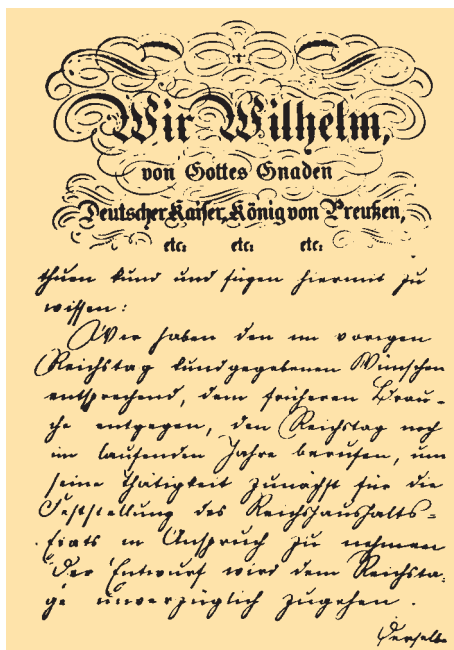 Wir Wilhelm,
von Gottes Gnaden
Deutscher Kaiser, König von Preußen,
etc. etc. etc.
thuen kund und fügen hiermit zu
wissen:
Wir haben den im vorigen
Reichstag kundgegebenen Wünschen
entsprechend, dem früheren Brau-
che entgegen, den Reichstag noch
im laufenden Jahre berufen, um
seine Thätigkeit zunächst für die
Feststellung des Reichshaushalts-
Etats in Anspruch zu nehmen
Der Entwurf wird dem Reichsta-
ge unverzüglich zugehen.
Derselbe